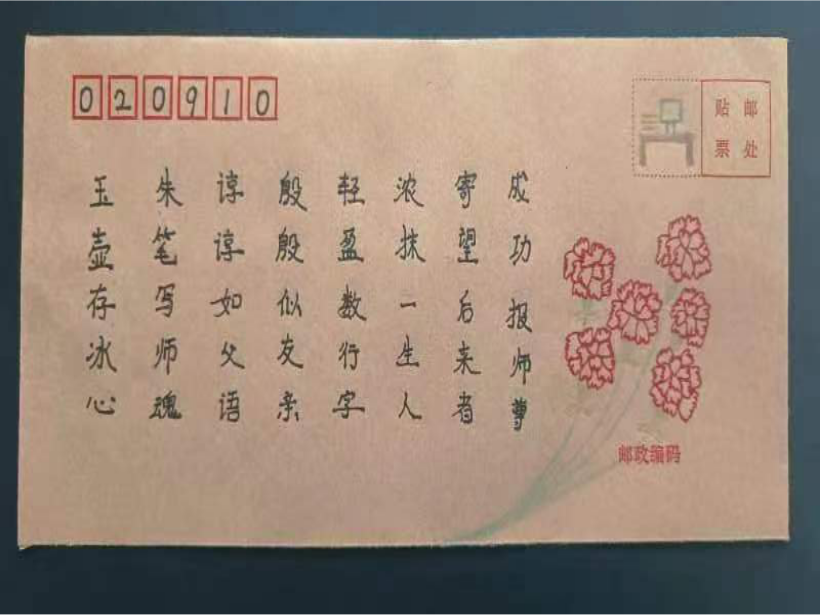 020910
贴邮
票处
玉壶存冰心
朱笔写师魂
谆谆如父语
殷殷似友亲
轻盈数行字
浓抹一生人
寄望后来者
成功报师尊
邮政编码